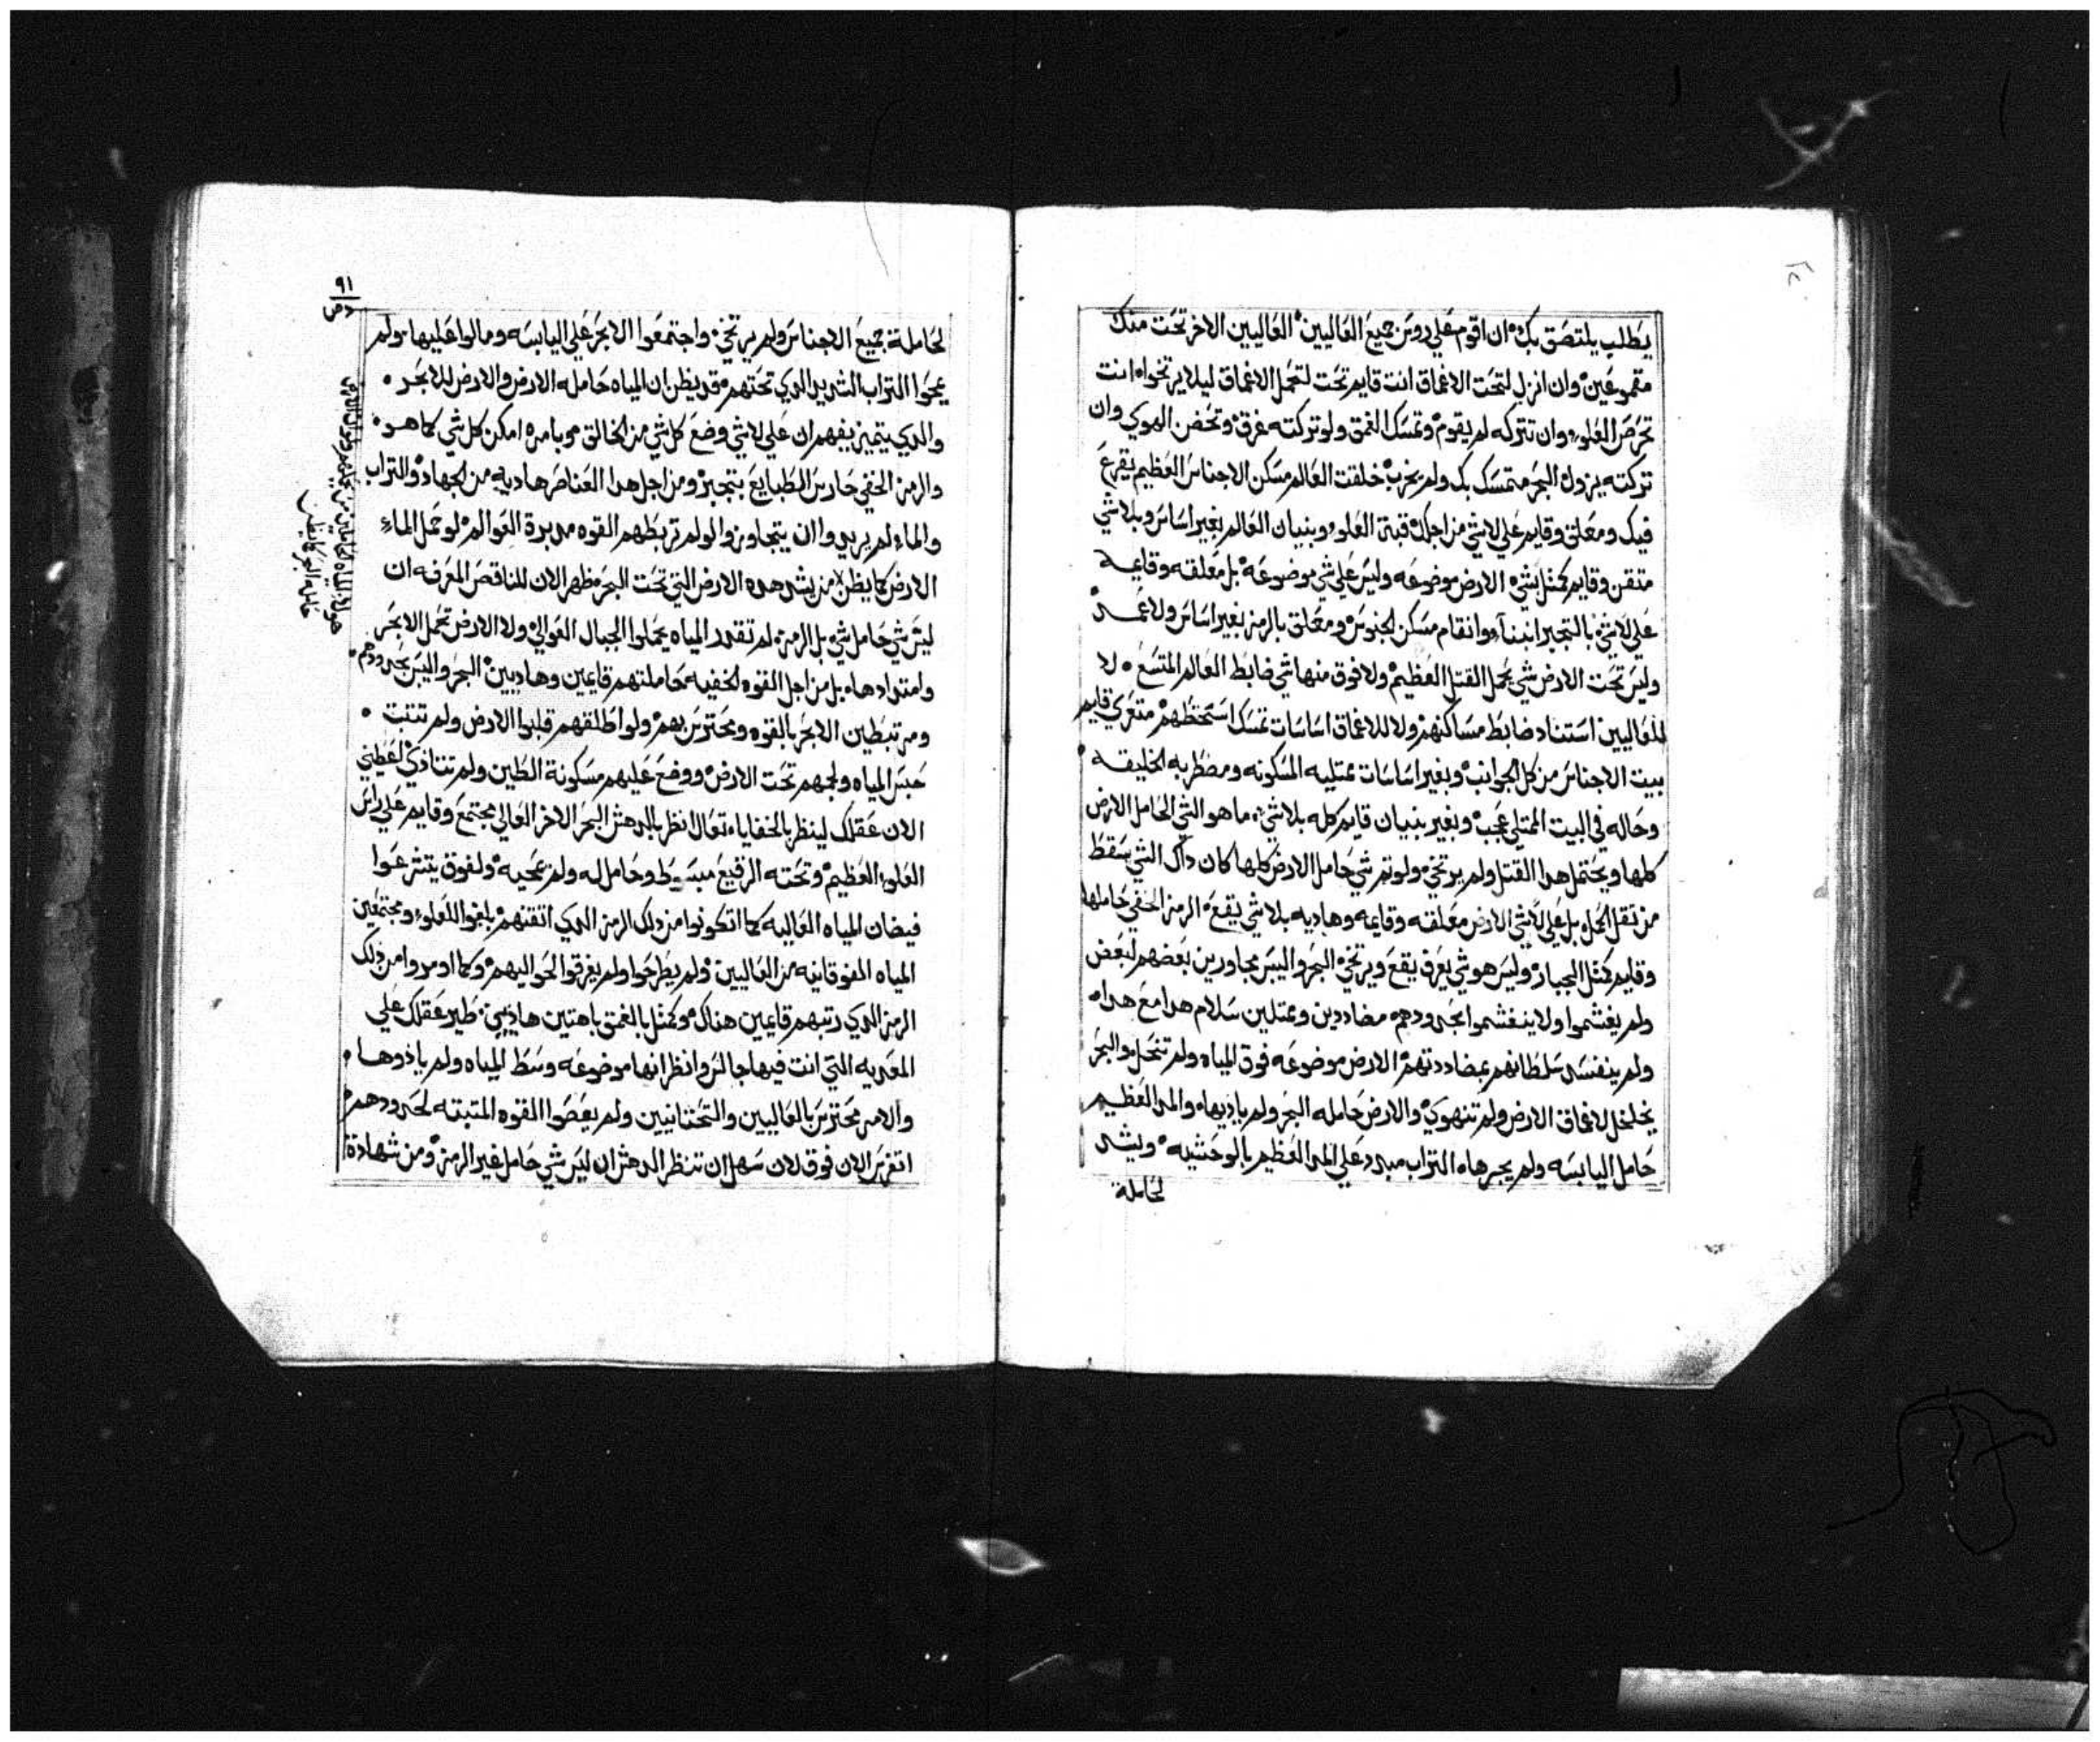 يطلب يلتصق بك ان اقوم علي روس جميع العاليين العاليين الاخر تحت منك
مقموعين وان انزل لتحت الاعماق انت قايم تحت لتحمل الاعماق ليلا يرتخوا انت
تحرص العلو وان تتركه لم يقوم وتمسك الغمق ولو تركته غرق وتحضن الهوي وان
تركته يزول البحر متمسك بك ولم يخرب خلقت العالم مسكن الاجناس العظيم يقرع
فيك ومعلق وقايم علي لاشي من اجلك قبة العلو وبنيان العالم بغير اساس وبلاشي
متقن وقايم كمثل شي الارض موضوعه وليس علي شي موضوعه بل معلقه وقايمه
علي لاشي بالتجبر ابتنا وانقام مسكن الجنوس ومعلق بالرمز بغير اساس ولا عمد
وليس تحت الارض شي يحمل القتل العظيم ولا فوق منها شي ضابط العالم المتسع لا
للعاليين استناد ضابط مساكنهم ولا للاعماق اساسات تمسك استحطهم متعري قايم
بيت الاجناس من كل الجوانب وبغير اساسات ممتليه المسكونه ومضطربه الخليقه
وحاله في البيت الممتلي عجب وبغير بنيان قايم كله بلاشي ما هو الشي الحامل الارض
كلها ويحتمل هدا القتل ولم يرتخي ولو تم شي حامل الارض كلها كان داك الشي سقط
من تقل الحمل بل علي لاشي الارض معلقه وقايمه وهاديه بلاشي يقع الرمز الخفي حاملها
وقايم كمثل الجبار وليس هو شي يعرف يقع ويرتخي البحر واليبس مجاورين بعضهم لبعض
ولم يغشموا ولا ينغشموا بحدودهم مضاددين وممتلين سلام هدا مع هدا
ولم ينفسد سلطانهم بمضاددتهم الارض موضوعه فوق المياه ولم تنحل والبحر
يخلخل لاعماق الارض ولم تنهوي والارض حامله البحر ولم ياديها والمد العظيم
حامل اليابسه ولم يجرها التراب مبدد علي المد العظيم بالوحشيه ويشد
لحاملة
٩١
لحاملة جميع الاجناس ولم يرتخي واجتمعوا الابحر علي اليابسه ومالوا عليها ولم
يمحوا التراب الشديد الدي تحتهم قد يظن ان المياه حامله الارض والارض للابحر
والدي يتميز يفهم ان علي لاشي وضع كل شي من الخالق وبامره امكن كل شي كما هو
والرمز الخفي حارس الطبايع بتجبر ومن اجل هدا العناصر هاديه من الجهاد والتراب
والماء لم يريدوا ان يتجاوزوا لو لم تربطهم القوه مدبرة العوالم لو حمل الماء
الارض كما يظن من يشد هده الارض التي تحت البحر مظهر الان للناقص المعرفه ان
ليس شي حامل شي بل الرمز لم تقدر المياه يحملوا الجبال العوالي ولا الارض تحمل الابحر
وامتدادها بل من اجل القوه الخفيه حاملتهم قايمين وهاديين البحر واليبس بحدودهم
ومرتبطين الابحر بالقوه ومحترس بهم ولو اطلقهم قلبوا الارض ولم تتبت
حبس المياه ولجهم تحت الارض ووضع عليهم مسكونة الطين ولم تتنادي لعطيني
الان عقلك لينظر بالخفايا تعال انظر بالدهش البحر الاخر العالي مجتمع وقايم علي راس
العلو العظيم وتحته الرقيع مبسوط وحامل له ولم تمحيه ولفوق يتشرعوا
فيضان المياه العاليه كما اتكونوا من دلك الرمز الدي اتقنهم بلغوا للعلو ومجتمعين
المياه الفوقانيه من العاليين ولم يطرحوا ولم يغرقوا لحواليهم وكما اومروا من دلك
الرمز الدي رتبهم قايمين هناك وكمثل بالغمق باهتين هاديين طير عقلك علي
المعديه التي انت فيها جالس وانظر انها موضوعه وسط المياه ولم ياذوها
والامر محترس بالعاليين والتحتانيين ولم يعصوا القوه المتبته لحدودهم
اتفرس الان فوق لان سهل ان تنظر الدهش ان ليس شي حامل غير الرمز ومن شهادة